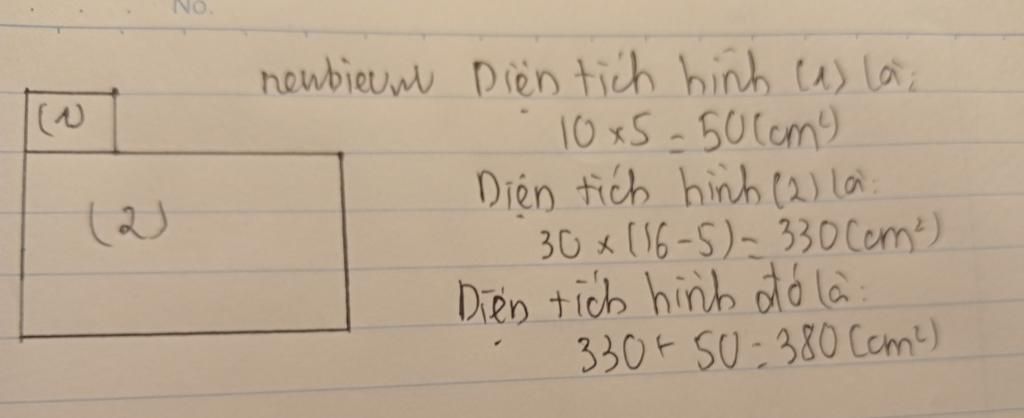 No.
newbievnn Diện tích hình (1) là:
10 × 5 = 50 (cm²)
(1)
Diện tích hình (2) là:
(2)
30 × (16 - 5) = 330 (cm²)
Diện tích hình đó là:
330 + 50 = 380 (cm²)